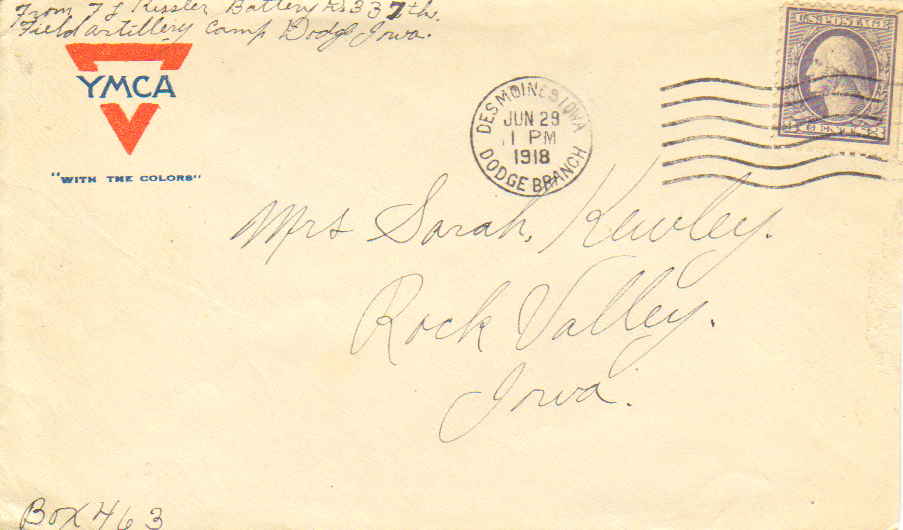 From F L Kissler Battery 337th.
Field artillery Camp Dodge Iowa.
YMCA
"WITH THE COLORS"
DES MOINES IOWA
JUN 29
11 PM
1918
DODGE BRANCH
U.S. POSTAGE
3 CENTS 3
Mrs Sarah, Kewley.
Rock Valley.
Iowa.
Box 463